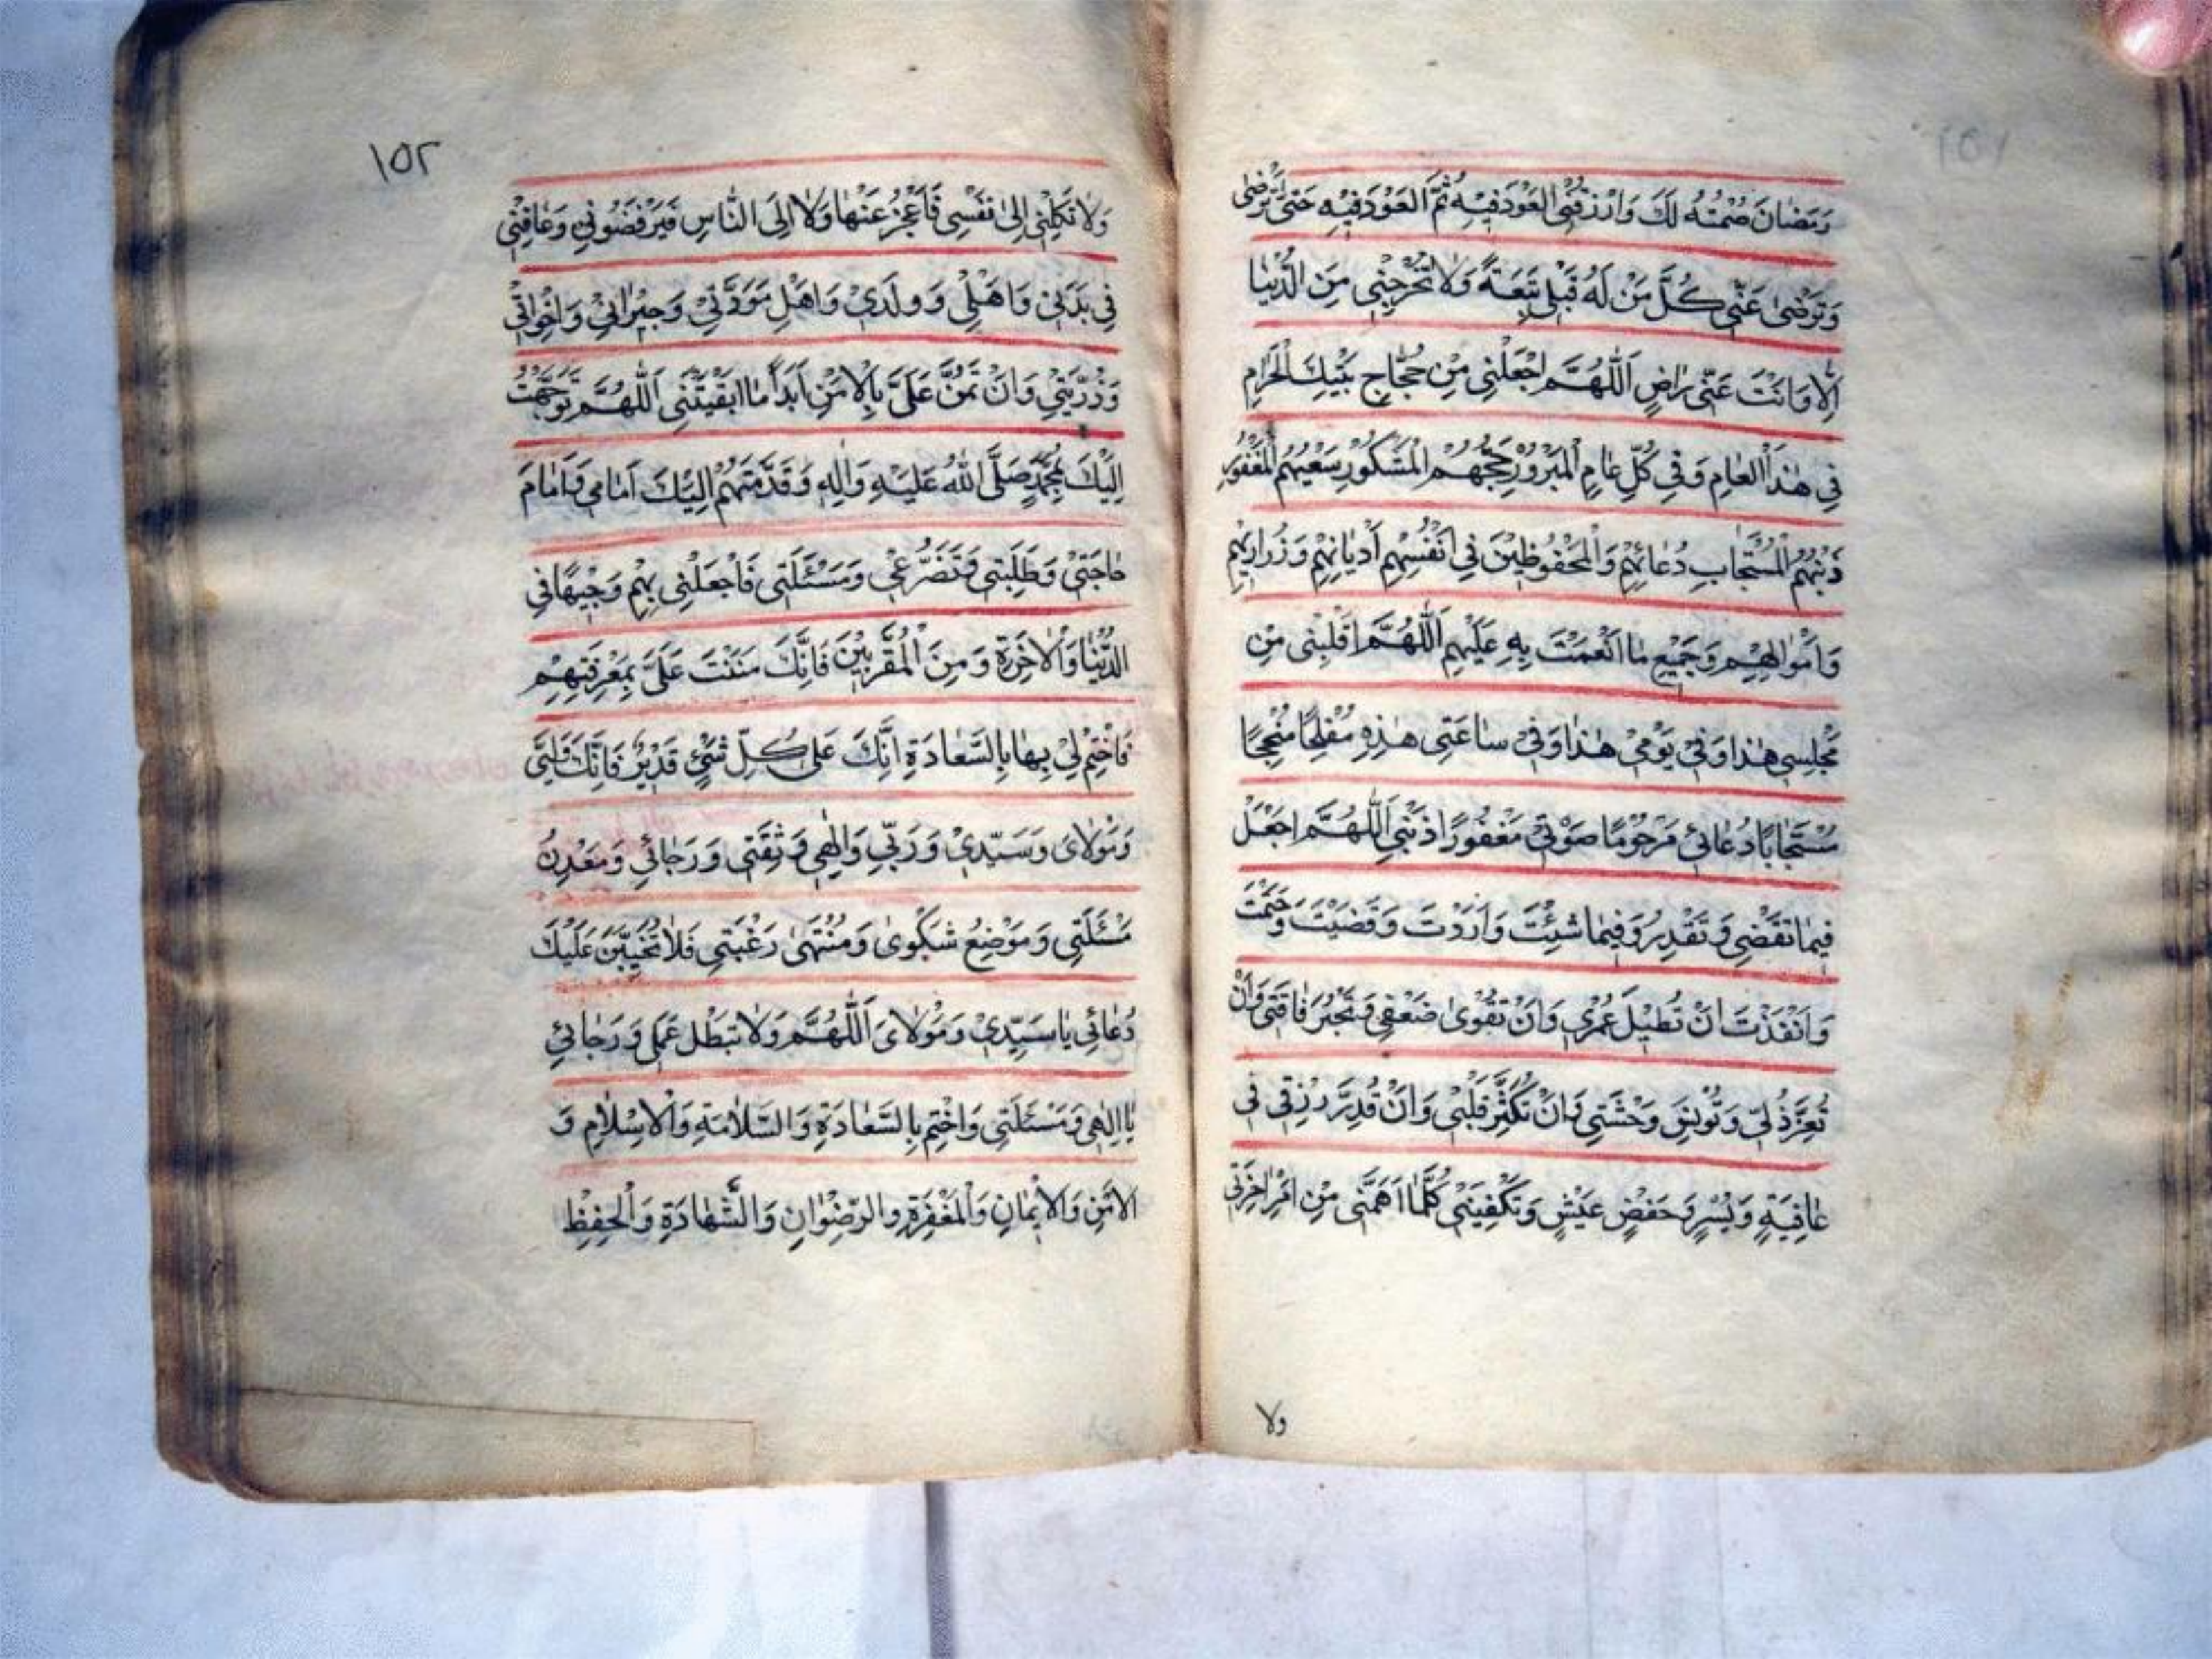 ١٥١
رَمَضانَ صُمْتُهُ لَكَ وَارْزُقْنِى الْعَوْدَ فيْهِ ثُمَّ الْعَوْدَ فيْهِ حَتّىٰ تَرْضىٰ
وَتَرْضىٰ عَنّى كُلَّ مَنْ لَهُ قِبَلى تَبِعَةً وَلاٰ تُخْرِجْنِى مِنَ الدُّنْيٰا
اِلاّ وَاَنْتَ عَنّى رٰاضٍ اَللّٰهُمَّ اجْعَلْنِى مِنْ حُجّٰاجِ بَيْتِكَ الْحَرٰامِ
فِى هٰذَا الْعٰامِ وَفِى كُلِّ عٰامٍ الْمَبْرُوْرِ حَجُّهُمْ الْمَشْكُوْرِ سَعْيُهُمْ الْمَغْفُوْرِ
ذَنْبُهُمُ الْمُسْتَجٰابِ دُعٰائُهُمْ وَالْمَحْفُوظِيْنَ فِى اَنْفُسِهِمْ اَدْيٰانِهِمْ وَزُرٰارِيْهِمْ
وَاَمْوٰالِهِمْ وَجَمِيْعِ مٰا اَنْعَمْتَ بِهِ عَلَيْهِمْ اَللّٰهُمَّ اقْلِبْنِى مِنْ
مَجْلِسِى هٰذا وَفِىْ يَوْمِىْ هٰذا وَفِىْ سٰاعَتِى هٰذِهِ مُفْلِحًا مُنْجِحًا
مُسْتَجٰابًا دُعٰائِى مَرْحُوْمًا صَوْتِىْ مَغْفُورًا ذَنْبِى اَللّٰهُمَّ اجْعَلْ
فِيمٰا تَقْضِى وَتَقْدِرُ وَفِيمٰا شِئْتَ وَاَرَدْتَ وَقَضَيْتَ وَحَتَمْتَ
وَاَنْفَذْتَ اَنْ تُطيْلَ عُمْرِى وَاَنْ تُقَوّىٰ ضَعْفِى وَتَجْبُرَ فٰاقَتِى وَاَنْ
تُعِزَّ ذُلّى وَتُوْنِسَ وَحْشَتِى وَاَنْ تُكَثِّرَ قَلْبِى وَاَنْ تُدِرَّ رِزْقِى فِى
عٰافِيَةٍ وَيُسْرٍ وَخَفْضِ عَيْشٍ وَتَكْفِيَنِىْ كُلَّمٰا اَهَمَّنِى مِنْ اَمْرِ اٰخِرَتِى
ولا
١٥٢
وَلاٰ تَكِلْنِى اِلىٰ نَفْسِى فَاَعْجِزُ عَنْهٰا وَلاٰ اِلَى النّٰاسِ فَيَرْفَضُوْنِى وَعٰافِنِى
فِى بَدَنِىْ وَاَهْلِىْ وَوَلَدِىْ وَاَهْلِ مَوَدَّتِىْ وَجِيْرٰانِىْ وَاِخْوٰانِى
وَذُرّيَّتِىْ وَاَنْ تَمُنَّ عَلَىَّ بِالْاَمْنِ اَبَدًا مٰا اَبْقَيْتَنِى اَللّٰهُمَّ تَوَجَّهْتُ
اِلَيْكَ بِمُحَمَّدٍ صَلَّى اللّٰهُ عَلَيْهِ وَاٰلِهِ وَقَدَّمْتُهُمْ اِلَيْكَ اَمٰامِى وَاَمٰامَ
حٰاجَتِىْ وَطَلِبَتِى وَتَضَرُّعِى وَمَسْئَلَتِى فَاجْعَلْنِى بِهِمْ وَجِيْهًا فِى
الدُّنْيٰا وَالْاٰخِرَةِ وَمِنَ الْمُقَرَّبيْنَ فَاِنَّكَ مَنَنْتَ عَلَىَّ بِمَعْرِفَتِهِمْ
فَاخْتِمْ لِىْ بِهٰا بِالسَّعٰادَةِ اِنَّكَ عَلى كُلِّ شَىْءٍ قَدِيْرٌ فَاِنَّكَ وَلِيّى
وَمَوْلاٰىَ وَسَيِّدِىْ وَرَبِّى وَاِلٰهِى وَثِقَتِى وَرَجٰائِى وَمَعْدِنُ
مَسْئَلَتِى وَمَوْضِعُ شَكْوىٰ وَمُنْتَهىٰ رَغْبَتِى فَلاٰ تُخَيِّبَنَّ عَلَيْكَ
دُعٰائِى يٰا سَيِّدِىْ وَمَوْلاٰىَ اَللّٰهُمَّ وَلاٰ تُبْطِلْ عَمَلى وَرَجٰائِى
يٰا اِلٰهِى وَمَسْئَلَتِى وَاخْتِمْ بِالسَّعٰادَةِ وَالسَّلاٰمَةِ وَالْاِسْلاٰمِ وَ
الْاَمْنِ وَالْاِيْمٰانِ وَالْمَغْفِرَةِ وَالرِّضْوٰانِ وَالشَّهٰادَةِ وَالْحِفْظِ